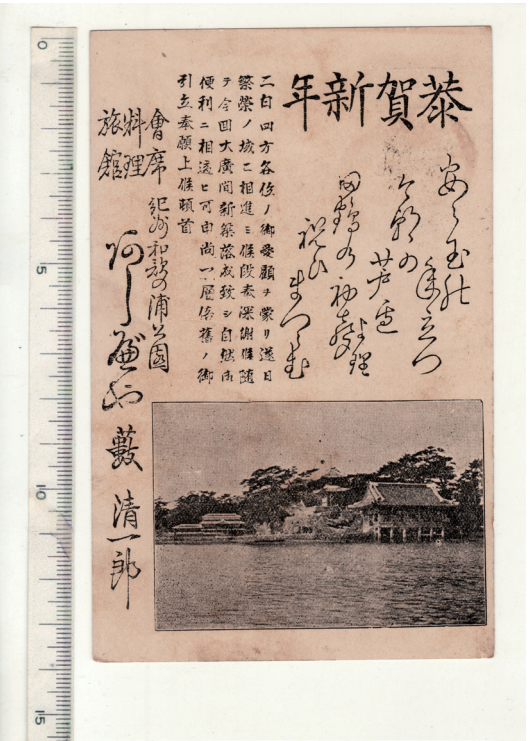 恭賀新年
芦邉
田鶴の初聲
祝ひまつる
二白四方各位ノ御愛顧ヲ蒙リ逐日
繁榮ノ域ニ相進ミ候段奉深謝候随
テ今回大廣間新築落成致シ自然御
便利ニ相適ヒ可申尚一層倍舊ノ御
引立奉願上候頓首
會席
料理
旅館
紀州和歌の浦公園
あしべや
藪清一郎
0
5
10
15